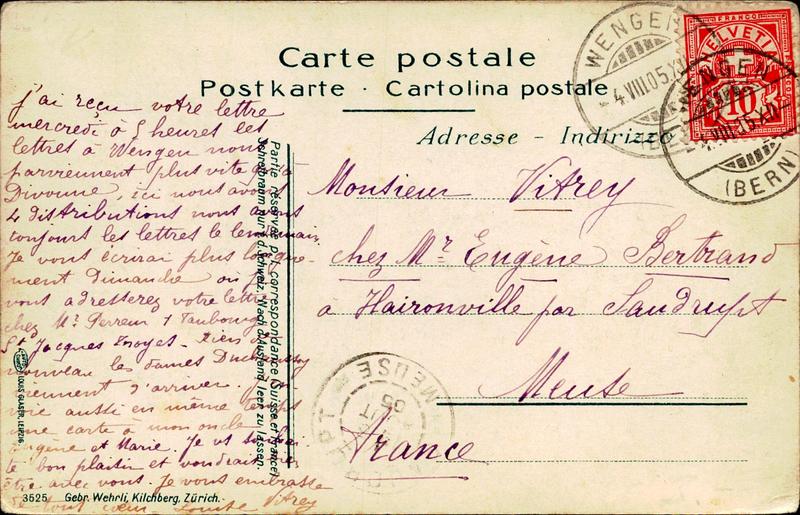 Carte postale
Postkarte · Cartolina postale
Adresse - Indirizzo
WENGEN
4.VIII.05.XI
(BERN)
FRANCO
HELVETIA
10
WENGEN
VIII.05.XI
(BERN)
j'ai reçu votre lettre
mercredi à 5 heures les
lettres à Wengen nous
parviennent plus vite qu'à
Divonne, ici nous avons
4 distributions nous avons
toujours les lettres le lendemain.
Je vous écrirai plus longue-
ment Dimanche où
vous adresserez votre lettre
chez Mr Perreur 1 Faubourg
St Jacques Troyes - Rien de
nouveau les dames Duchaussoy
viennent d'arriver.
aussi en même temps
une carte à mon oncle
Eugène et Marie. Je vs
le bon plaisir et voudrais
être avec vous. Je vous embrasse
de tout cœur Louise Vitrey
Partie réservée à la correspondance (Suisse et France)
Schreibraum nur f. d. Schweiz. Nach d. Ausland leer zu lassen.
Monsieur Vitrey
chez Mr Eugène Bertrand
à Haironville par Saudrupt
Meuse
France
MEUSE
05
LOUIS GLASER, LEIPZIG
3525 Gebr. Wehrli, Kilchberg, Zürich.